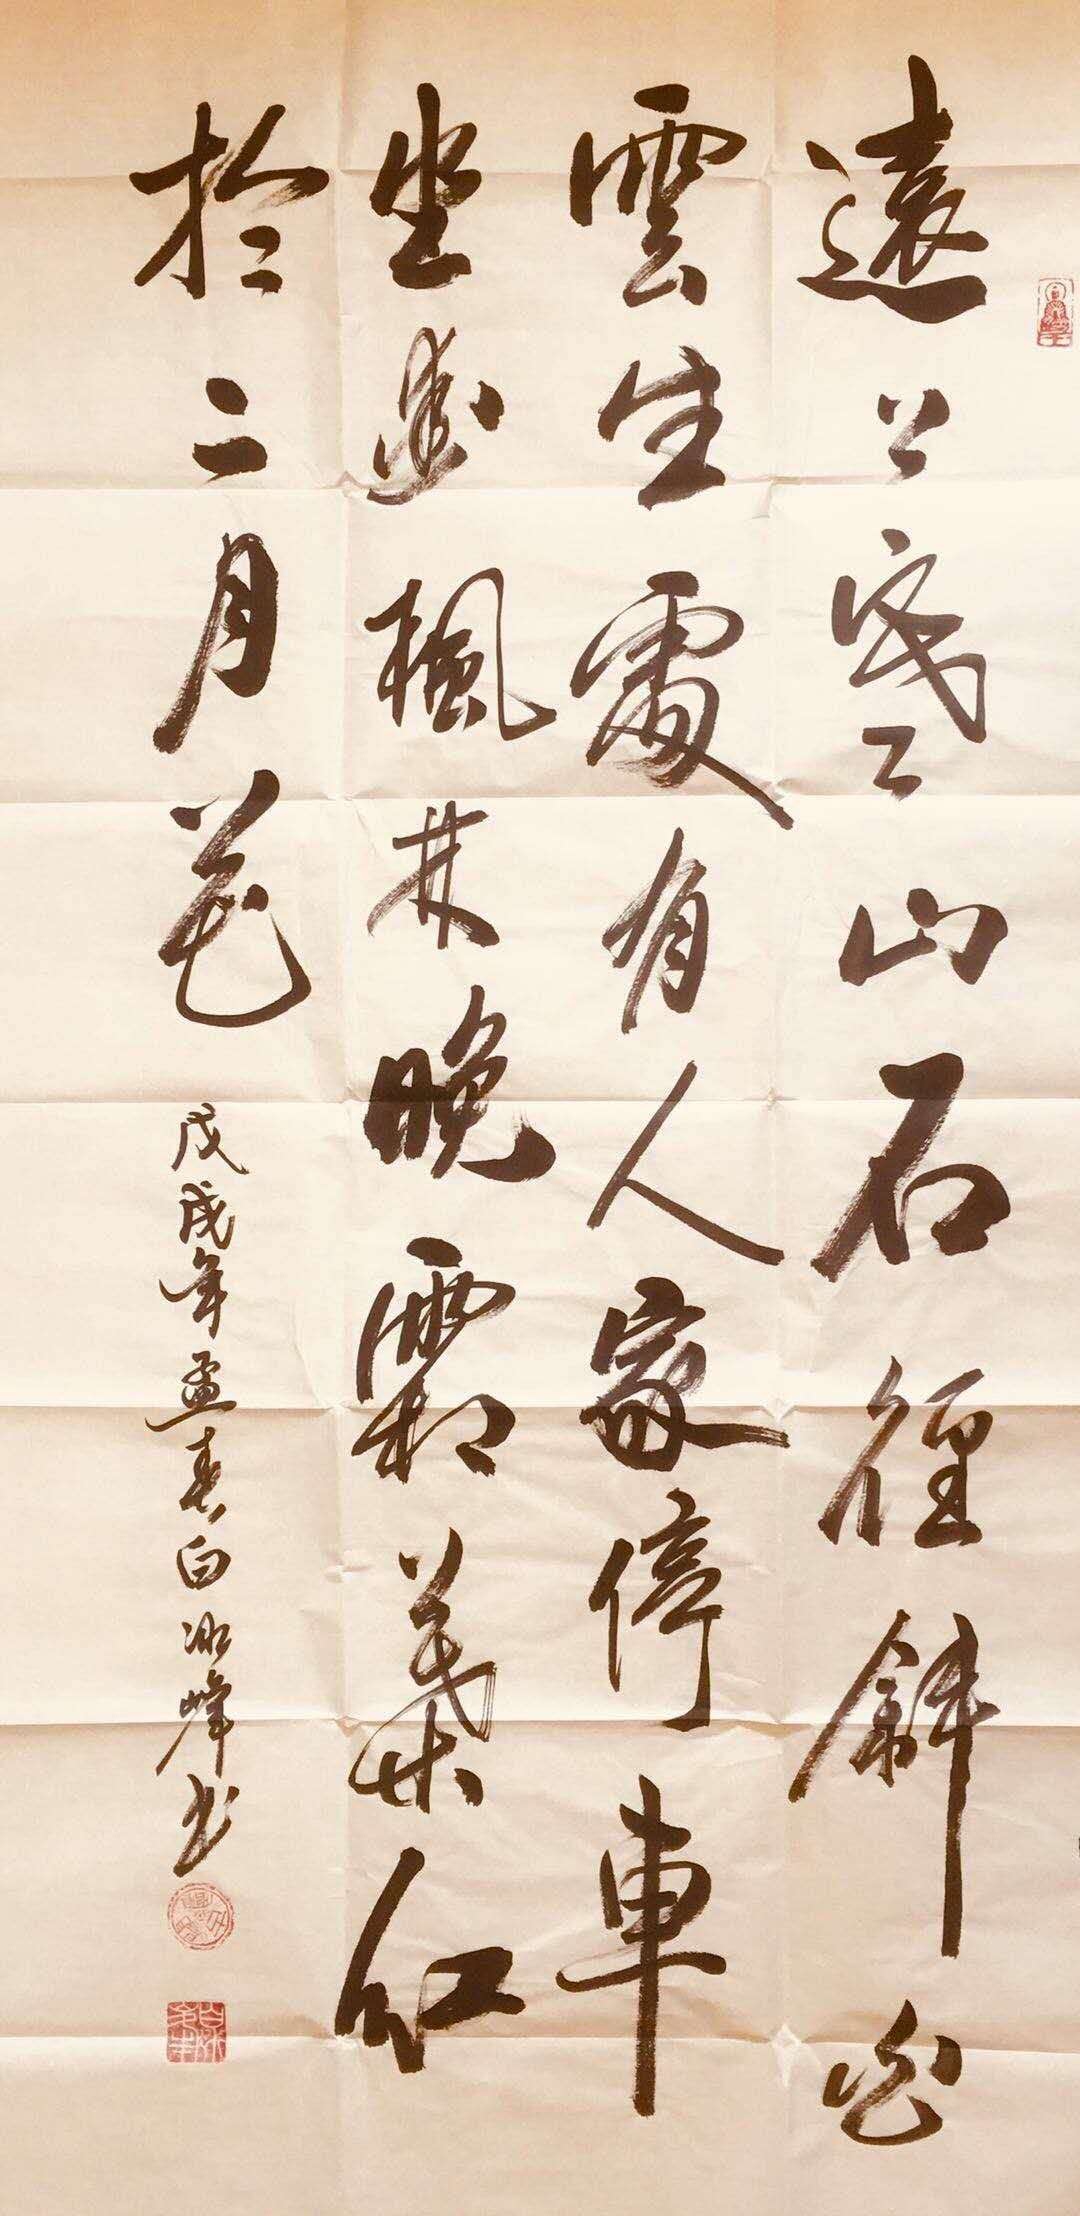 遠上寒山石徑斜白
雲生處有人家停車
坐愛楓林晚霜葉紅
於二月花
戊戌年孟春白冰峰书